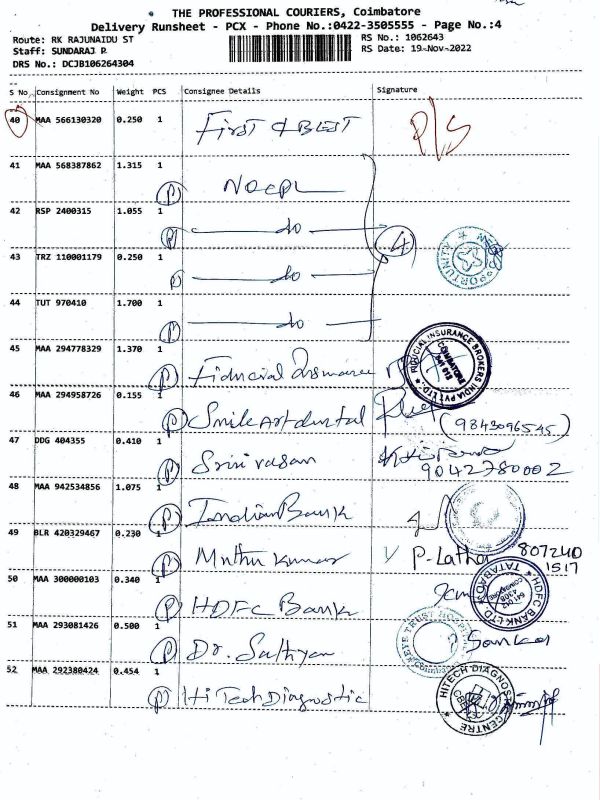 THE PROFESSIONAL COURIERS, Coimbatore
Delivery Runsheet - PCX - Phone No.:0422-3505555 - Page No.:4
Route: RK RAJUNAIDU ST RS No.: 1062643
Staff: SUNDARAJ P. RS Date: 19-Nov-2022
DRS No.: DCJB106264304
S No Consignment No Weight PCS Consignee Details Signature
40 MAA 566130320 0.250 1 First & BEST P/S
41 MAA 568387862 1.315 1 P
42 RSP 2400315 1.055 1 P do 4
43 TRZ 110001179 0.250 1 P do
44 TUT 970410 1.700 1 P do
45 MAA 294778329 1.370 1 P Fiducial Insurance FIDUCIAL INSURANCE BROKERS INDIA PVT LTD. COIMBATORE
46 MAA 294958726 0.155 1 P Smile Art dental (9843096545)
47 DDG 404355 0.410 1 P Srinivasan 9042780002
48 MAA 942534856 1.075 1 P Indian Bank
49 BLR 420329467 0.230 1 P Muthu Kumar P. Latha 807240
1517
50 MAA 300000103 0.340 1 P HDFC Bank HDFC BANK LTD. TATABAD
51 MAA 293081426 0.500 1 P Dr. Sathyan EYE TRUST HOSPITAL
52 MAA 292380424 0.454 1 P Hi Tech Diagnostic HITECH DIAGNOSTIC CENTRE